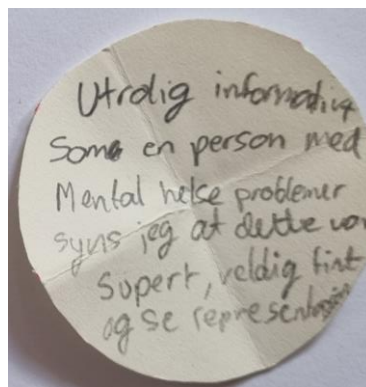 Utrolig informativ
Som en person med
Mental helse problemer
syns jeg at dette var
Supert, veldig fint
og se representasjon